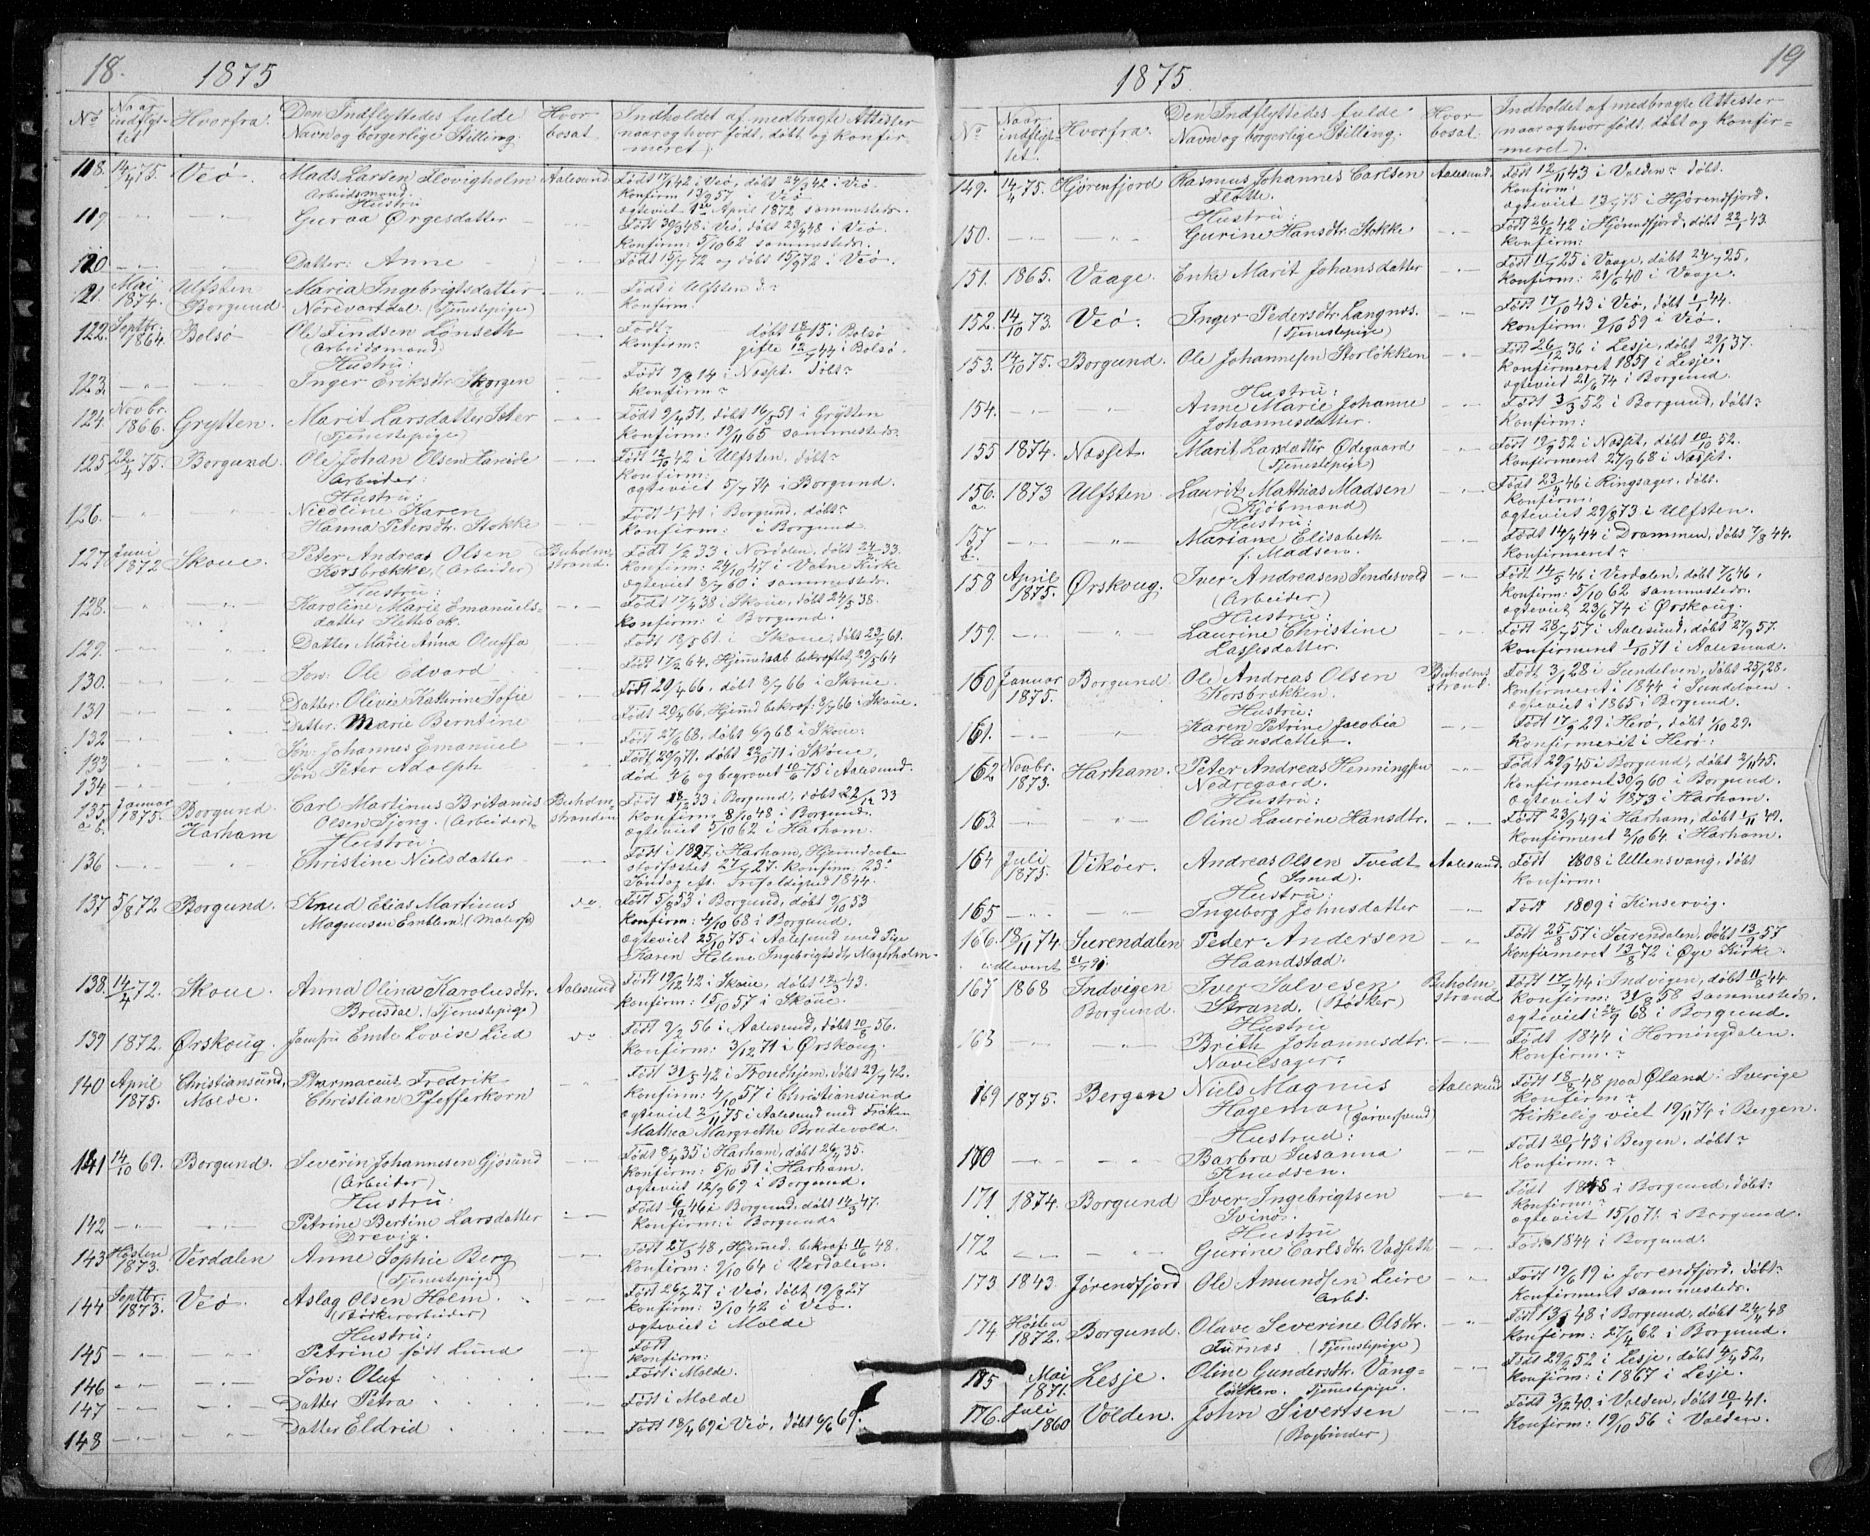 18.
1875
No
Naar indflyt- tet
Hvorfra:
Den Indflyttedes fulde Navn og borgerlige Stilling:
Hvor bosat.
Indholdet af medbragte Attester (naar og hvor født, døbt og konfir- meret).
118. 14/4 75. Veø. Mads Larsen Aalesund Født 17/1 42 i Veø, døbt 24/3 42 i Veø
Arbeidsmand: Konfirm 13/9 57 " Veø
Hustru ægteviet 1ste April 1872 sammesteds.
119 Guraa Ørgesdatter Født 30/3 48 i Veø, døbt 23/4 48 i Veø.
Konfirm. 5/10 62 sammesteds.
120 Datter: Anne Født 15/7 72 og døbt 15/9 72 i Veø.
121. Mai 1874. Ulfsten Borgund Maria Ingebrigtsdatter Født i Ulfsten d.?
(Tjenestepige) Konfirm
122. Septbr. 1864. Bolsø Ole Findsen Lønseth Født? døbt 18/6 15 i Bolsø
(Arbeidsmand) Konfirm: gifte 12/7 44 i Bolsø.
Hustru:
123. Inger Eriksdtr Skorgen Født 9/8 14 i Næsset. døbt?
Konfirm?
124. Novbr. 1866. Grytten. Marit Larsdatter Sæter Født 9/4 51, døbt 16/3 51 i Grytten
(Tjenestepige) Konfirm: 19/11 65 sammesteds.
125 22/4 75. Borgund. Ole Johan Olsen Født 12/10 42 i Ulfsten, døbt?
Arbeider: Konfirm:
Hustru: ægteviet 5/7 74 i Borgund.
126. Nicoline Karen Født 41 i Borgund, døbt?
Hanna Petersdtr. Stokke Konfirm: i Borgund
127 Juni 1872 Skoue. Peter Andreas Olsen Buholm- strand. Født 1/2 33 i Norddalen, døbt 24/2 33.
Korsbrække, (Arbeider) Konfirm: 24/10 47 i Vatne Kirke
Hustru: ægteviet 8/7 60 i sammesteds.
128. Karoline Marie Emanuels- Født 17/4 38 i Skoue, døbt 24/5 38.
datter Slettebak. Konfirm: i Borgund.
129. Datter Marie Anna Oluffa Født 18/5 61. i Skoue, døbt 23/7 61.
130. Søn: Ole Edvard Født 17/2 64, Hjemdaab bekræftet 29/5 64
131 Datter: Olivie Kathrine Sofie Født 29/4 66, døbt 8/7 66 i Skoue.
132 Datter: Marie Berntine Født 29/4 66, Hjemd bekræf: 8/7 66 i Skoue.
133 Søn: Johannes Emanuel Født 27/6 68, døbt 6/9 68 i Skoue:
134 Søn Peter Adolph Født, 29/9 71, døbt 22/10 71 i Skoue,
død 4/6 og begravet 10/6 75 i Aalesund.
135. a.b. Januar 1875. Borgund Harham Carl Martinus Britanus Buholm- stranden Født 18/12 33 i Borgund, døbt 22/12 33
Olsen Sjong. (Arbeider) Konfirm 8/10 48 i Borgund.
Hustru: ægteviet 5/10 62 i Harham.
136 Christine Nielsdatter Født i 1827 i Harham, Hjemmedøbt
27/7 27. Konfirm. 23de
Søndag eft. Trefoldighed 1844.
137 5/8 72 Borgund. Knud Elias Martinus do. Født 5/8 53 i Borgund, døbt 9/10 53
Magnussen Emblem (Malersv.) Konfirm: 4/10 68 i Borgund.
ægteviet 25/10 75 i Aalesund med Pige
Karen Helene Ingebrigtsdtr Magerholm.
138. 14/4 72. Skoue. Anna Olina Karolusdtr. Aalesund Født 19/12 42 i Skoue, døbt 12/3 43.
Breidal. (Tjenestepige) Konfirm: 15/10 57 i Skoue.
139 1872. Ørskoug. Jomfru Emte Lovise Lied do Født 9/2 56 i Aalesund, døbt 10/8 56.
Konfirm: 3/12 71 i Ørskoug.
140 April 1875. Christiansund, Molde. Pharmaceut Fredrik Født 31/5 42 i Trondhjem, døbt 29/7 42.
Christian Pfefferkorn Konfirm: 4/10 57 i Christiansund
ægteviet 2/11 75 i Aalesund med Frøken
Mathea Margrethe Brudevold.
141 14/10 69. Borgund. Severin Johannesen Gjøsund Født 8/4 35 i Harham, døbt 26/4 35.
(Arbeider) Konfirm: 5/10 51 i Harham.
Hustru: ægteviet 12/9 69 i Borgund.
142 Petrine Bertine Larsdatter Født 6/12 46 i Borgund, døbt 14/3 47.
Drevig. Konfirm: i Borgund
143 Høsten 1873. Verdalen Anne Sophie Berg Født 27/3 48, Hjemmed. bekræf: 11/6 48.
(Tjenestepige) Konfirm: 9/10 64 i Verdalen.
144 Septbr. 1873. Veø. Aslag Olsen Holm Født 26/7 27 i Veø, døbt 19/8 27
Konfirm: 3/10 42 i Veø.
Hustru: ægteviet i Molde
145 Petrine født Lund Født
Konfirm:
146 Søn: Oluf Født i Molde.
147 Datter Petra Født i Molde
148 Datter Eldrid Født 18/4 69 i Veø, døbt 6/6 69.
19
1875.
No.
Naar indflyt- tet.
Hvorfra:
Den Indflyttedes fulde Navn og borgerlige Stilling.
Hvor bosat.
Indholdet af medbragte Attester (naar og hvor født, døbt og konfir- meret).
149. 14/4 75. Hjørenfjord Rasmus Johannes Carlsen Aalesund. Født 12/11 43 i Volden? døbt.
Flotte. Konfirm:
Hustru: ægteviet 13/7 75 i Hjørendfjord.
150. Gurine Hansdtr Stokke Født 26/12 42 i Hjørendfjord, døbt 22/1 43.
Konfirm:
151. 1865. Vaage. Enke Marit Johansdatter Født 11/7 25 i Vaage, døbt 24/7 25,
Konfirm: 21/6 40 i Vaage.
152. 14/10 73. Veø. Inger Pedersdtr Langnes. Født 17/10 43 i Veø, døbt 1/1 44.
(Tjenestepige) Konfirm: 9/10 59 i Veø.
153. 14/10 75. Borgund. Ole Johannesen Storløkken Født 26/12 36 i Lesje, døbt 29/1 37.
Konfirmeret 1851 i Lesje.
Hustru: ægteviet 21/6 74 i Borgund.
154. Anne Marie Johanne Født 3/3 52 i Borgund, døbt?
Johannesdatter. Konfirm:
155 1874. Næsset. Marit Larsdatter Ødegaard Født 19/9 52 i Næsset, døbt 10/10 52.
(Tjenestepige) Konfirmeret 27/9 68 i Næsset.
156. a. 1873 Ulfsten Laurits Mathias Madsen Født 23/4 46 i Ringsager, døbt.
(Kjøbmand) Konfirm:
Hustru: ægteviet 29/8 73 i Ulfsten.
157 b. Mariane Elisabeth Født 14/4 44 i Drammen, døbt 7/8 44.
f. Madsen. Konfirmeret?
158 April 1875. Ørskoug. Iver Andreasen Født 14/5 46 i Verdalen, døbt 7/6 46,
(Arbeider) Konfirm: 5/10 62 sammesteds.
Hustru: ægteviet 23/6 74 i Ørskoug.
159. Laurine Christine Født 28/7 57 i Aalesund, døbt 27/9 57.
Lassesdatter. Konfirmeret 1/10 71 i Aalesund.
160 Januar 1875. Borgund. Ole Andreas Olsen Buholm- strand. Født 3/1 28 i Sundelven, døbt 25/1 28.
Korsbrækken. Konfirmeret i 1844 i Sundelven.
Hustru: ægteviet i 1865 i Borgund.
161. Karen Petrine Jacobia Født 17/9 29 i Herø, døbt 1/10 29.
Hansdatter. Konfirmeret i Herø:
162 Novbr. 1873. Harham. Peter Andreas Henningsen Født 29/9 45 i Borgund, døbt 2/11 45.
Nedregaard. Konfirmeret 30/9 60 i Borgund.
Hustru: ægteviet i 1873 i Harham.
163. Oline Laurine Hansdtr. Født 23/9 49 i Harham, døbt 1/11 49.
Konfirmeret 2/10 64 i Harham.
164 Juli 1875. Vikøer. Andreas Olsen Tvedt Aalesund. Født 1808 i Ullensvang, døbt
(Smed). Konfirm:
Hustru:
165 Ingeborg Johnsdatter Født 1809 i Kinservig.
166. 18/11 74. Surendalen Peder Andersen Født 25/8 57 i Surendalen, døbt 13/9 57
udleveret 21/7 91 Haandstad. Konfirmeret 13/8 72 i Øye Kirke.
167 1868 Indvigen Borgund Iver Salvesen Buholm strand. Født 17/7 44 i Indvigen, døbt 11/8 44.
Strand. (Rødtler) Konfirm: 31/8 58 sammesteds.
Hustru ægteviet i 68 i Borgund.
168 Brith Johannesdtr. Født 1844 i Horningdalen.
Navelsager. Konfirm.?
169 1875. Bergen Niels Magnus Aalesund Født 18/8 48 paa Øland i Sverige
Hageman (Garversvend) Konfirm?
Hustrud: Kirkelig viet 19/11 74 i Bergen.
170 Barbra Susanna Født 20/4 43 i Bergen, døbt?
Knudsen. Konfirm.?
171 1874. Borgund Iver Ingebrigtsen Født 1848 i Borgund, døbt:
Svinø. Konfirm:
Hustru ægteviet 15/10 71 i Borgund.
172 Gurine Carlsdtr. Født 1844 i Borgund.
173 1843. Jørendfjord Ole Amundsen Leire Født 19/6 19 i Jørendfjord, døbt:
Arbd. Konfirmeret sammesteds.
174 Høsten 1872. Borgund. Olave Severine Olsdtr. Født 13/1 48 i Borgund, døbt 24/4 48
Furnæs. (Tjenestepige) Konfirm: 27/4 62 i Borgund.
175 Mai 1871. Lesje. Oline Gundersdtr. Vang- Født 29/2 52 i Lesje, døbt 4/4 52,
Tjenestepige. Konfirm: i 1867 i Lesje.
176. Juli 1860 Volden. John Sivertsen Født 3/12 40 i Volden, døbt 10/1 41.
(Bogbinder) Konfirm: 19/10 56 i Volden.